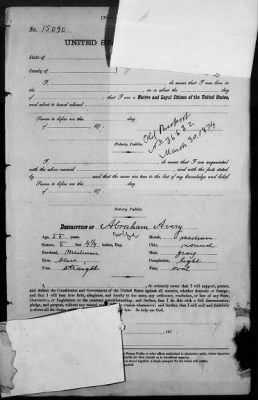 No. 15090
UNITED ST
State of
County of
I, do swear that I was born in
the on or about the day
of that I am a Native and Loyal Citizen of the United States,
and about to travel abroad
Sworn to before me this
of 187
Notary Public.
Old Passport
No. 36622
March 30, 1874
I, do swear that I am acquainted
with the above-named and with the facts stated
by and that the same are true to the best of my knowledge and belief.
Sworn to before me this day
of 187
Notary Public.
DESCRIPTION OF Abraham Avery
Age, 55 years.
Mouth, medium
Stature, 5 feet 4½ inches, Eng.
Chin, round
Forehead, Medium
Hair, gray
Eyes, blue
Complexion, light
Nose, straight
Face, oval
I, do solemnly swear that I will support, protect,
and defend the Constitution and Government of the United States against all enemies, whether domestic or foreign;
and that I will bear true faith, allegiance, and loyalty to the same, any ordinance, resolution, or law of any State,
Convention, or Legislature to the contrary notwithstanding; and further, that I do this with a full determination,
pledge, and purpose, without any mental reservation or evasion whatsoever; and further, that I will well and faithfully
187